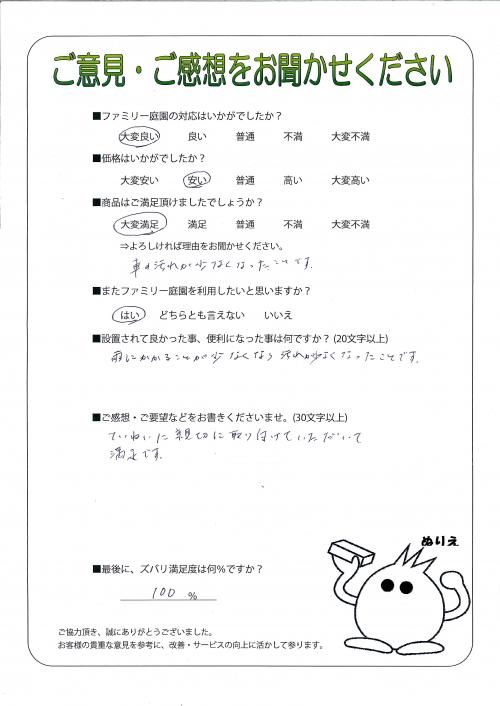 ご意見・ご感想をお聞かせください
■ファミリー庭園の対応はいかがでしたか？
大変良い 良い 普通 不満 大変不満
■価格はいかがでしたか？
大変安い 安い 普通 高い 大変高い
■商品はご満足頂けましたでしょうか？
大変満足 満足 普通 不満 大変不満
⇒よろしければ理由をお聞かせください。
車の汚れが少なくなったことです。
■またファミリー庭園を利用したいと思いますか？
はい どちらとも言えない いいえ
■設置されて良かった事、便利になった事は何ですか？(20文字以上)
雨にかかることが少なくなり汚れが少なくなったことです。
■ご感想・ご要望などをお書きくださいませ。(30文字以上)
ていねいに親切に取り付けていただいて
満足です。
ぬりえ
■最後に、ズバリ満足度は何％ですか？
100 %
ご協力頂き、誠にありがとうございました。
お客様の貴重な意見を参考に、改善・サービスの向上に活かして参ります。